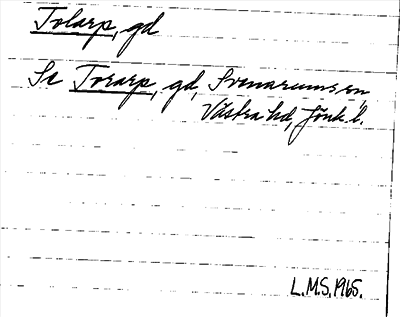 Tolarp, gd
Se Torarp, gd, Svenarums sn,
Västra hd, Jönk. l.
L.M.S. 1965.